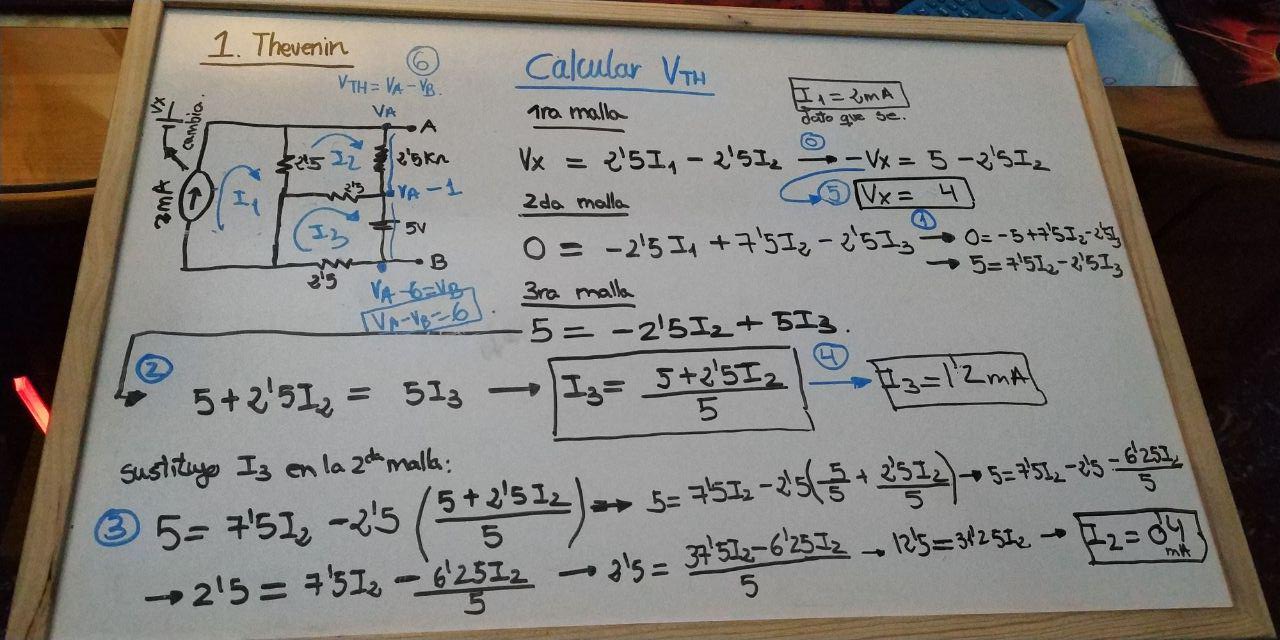 1. Thevenin
6
VTH = VA - VB.
Vx
cambia.
2mA
I1
2'5
I2
VA
A
2'5KΩ
2'5
VA - 1
I3
5V
2'5
B
VA - 6 = VB
VA - VB = 6
Calcular VTH
I1 = 2mA
dato que se.
1ra malla
Vx = 2'5I1 - 2'5I2 0 → -Vx = 5 - 2'5I2
5 Vx = 4
2da malla
0 = -2'5I1 + 7'5I2 - 2'5I3 1 → 0 = -5 + 7'5I2 - 2'5I3
→ 5 = 7'5I2 - 2'5I3
3ra malla
5 = -2'5I2 + 5I3.
2
5 + 2'5I2 = 5I3 → I3 = (5 + 2'5I2)/5 4 → I3 = 1'2mA
sustituyo I3 en la 2da malla:
3 5 = 7'5I2 - 2'5 ((5 + 2'5I2)/5) → 5 = 7'5I2 - 2'5(5/5 + 2'5I2/5) → 5 = 7'5I2 - 2'5 - 6'25I2/5
→ 2'5 = 7'5I2 - 6'25I2/5 → 2'5 = (37'5I2 - 6'25I2)/5 → 12'5 = 31'25I2 → I2 = 0'4 mA